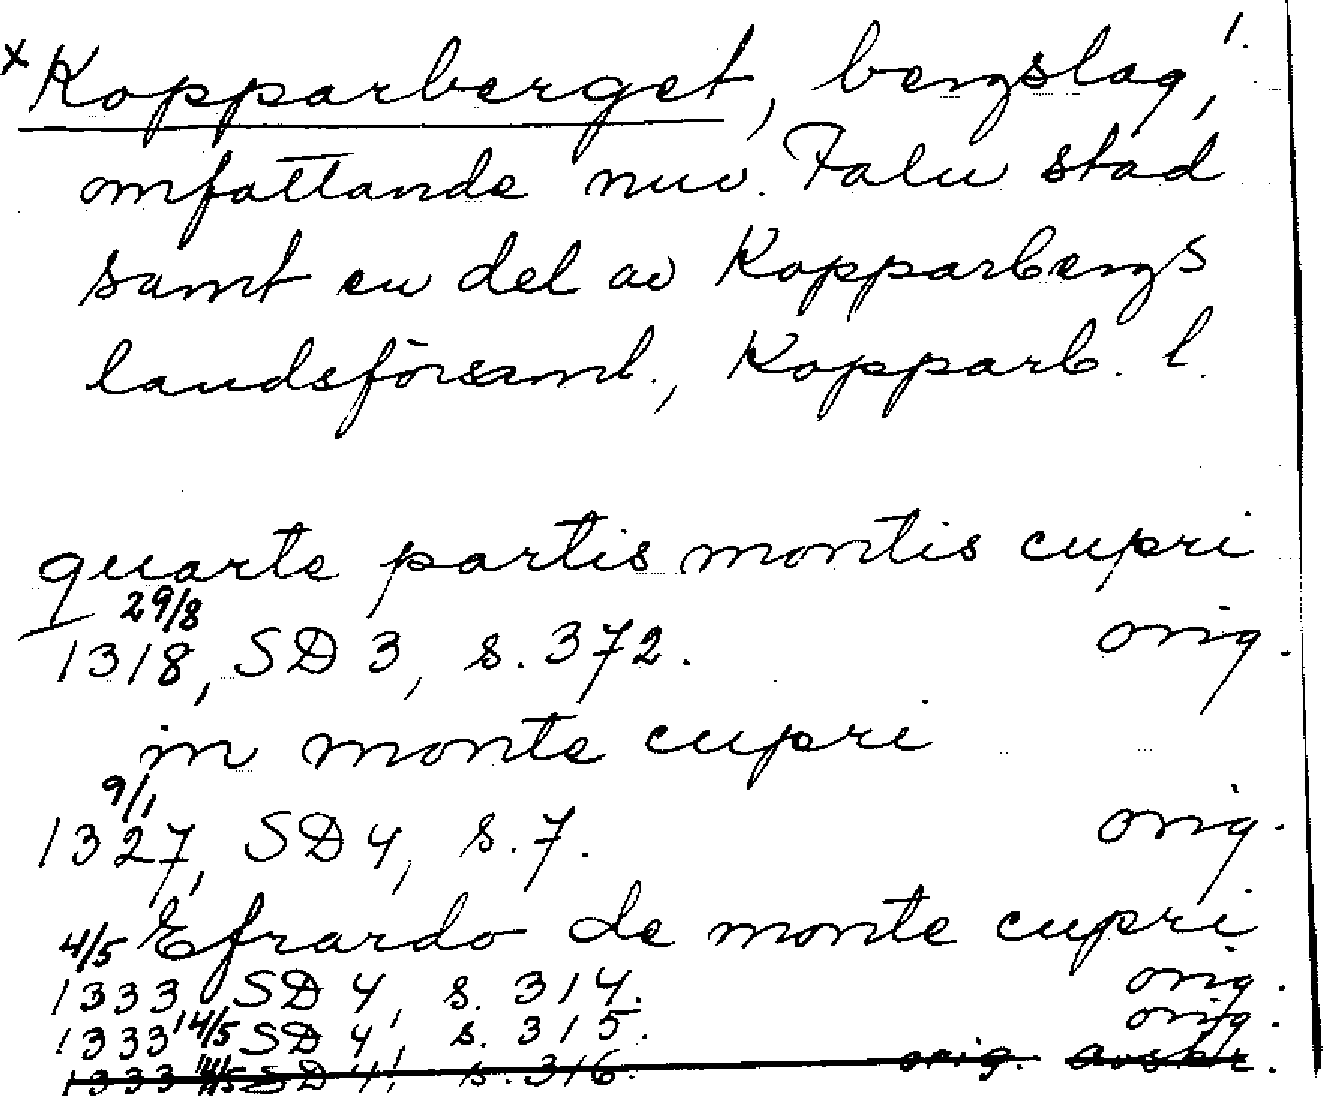 x Kopparberget, bergslag, 1.
omfattande nuv. Falu stad
samt en del av Kopparbergs
landsförsaml., Kopparb. l.
quarte partis montis cupri
29/8
1318, SD 3, s. 372. orig.
in monte cupri
9/1
1327, SD 4, s. 7. orig.
4/5 Efrardo de monte cupri
1333, SD 4, s. 314. orig.
1333 14/5 SD 4, s. 315. orig.
1333 14/5 SD 4, s. 316. orig. avskr.